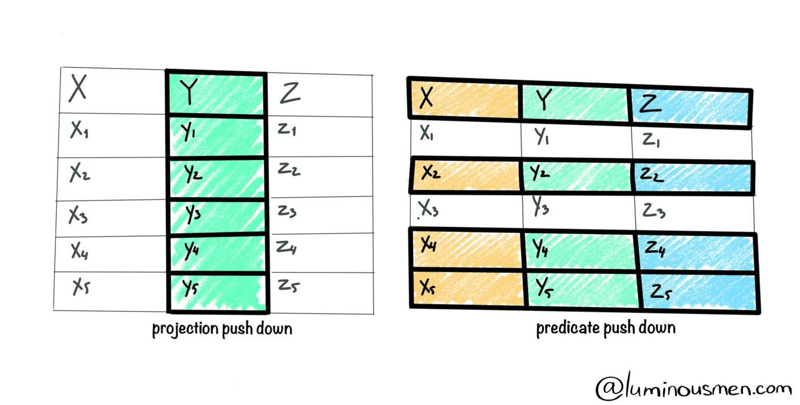 X Y Z
X1 Y1 Z1
X2 Y2 Z2
X3 Y3 Z3
X4 Y4 Z4
X5 Y5 Z5
projection push down
X Y Z
X1 Y1 Z1
X2 Y2 Z2
X3 Y3 Z3
X4 Y4 Z4
X5 Y5 Z5
predicate push down
@luminousmen.com